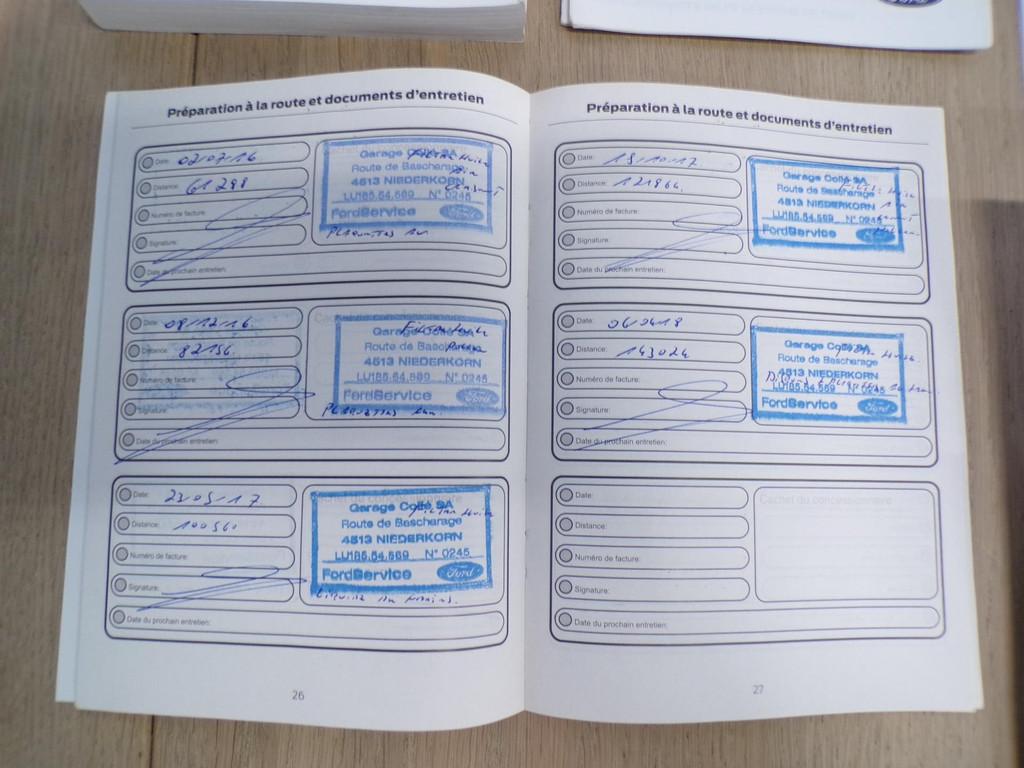 Préparation à la route et documents d'entretien
Date: 02/07/16
Distance: 61298
Numéro de facture:
Signature:
Date du prochain entretien:
Garage Collé SA
Route de Bascharage
4513 NIEDERKORN
LU185.54.569 N° 0245
FordService Ford
Plaquettes
Date: 08/12/16
Distance: 82156.
Numéro de facture:
Signature:
Date du prochain entretien:
Garage Collé SA
Route de Bascharage
4513 NIEDERKORN
LU185.54.569 N° 0245
FordService Ford
Plaquettes
Date: 23/05/17
Distance: 100560
Numéro de facture:
Signature:
Date du prochain entretien:
Garage Collé SA
Route de Bascharage
4513 NIEDERKORN
LU185.54.569 N° 0245
FordService Ford
26
Préparation à la route et documents d'entretien
Date:
Distance: 121864.
Numéro de facture:
Signature:
Date du prochain entretien:
Garage Collé SA
Route de Bascharage
4513 NIEDERKORN
LU185.54.569 N° 0245
FordService Ford
Date: 06/04/18
Distance: 143024
Numéro de facture:
Signature:
Date du prochain entretien:
Garage Collé SA
Route de Bascharage
4513 NIEDERKORN
LU185.54.569 N° 0245
FordService Ford
Date:
Distance:
Numéro de facture:
Signature:
Date du prochain entretien:
Cachet du concessionnaire
27